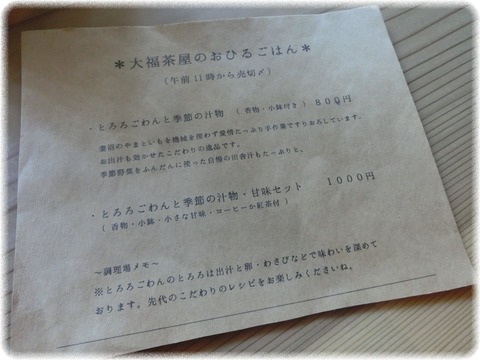 ＊大福茶屋のおひるごはん＊
（午前11時から売切〆）
・とろろごわんと季節の汁物 （香物・小鉢付き）８００円
のやまといもを機械を使わず愛情たっぷり手作業ですりおろしています。
お出汁も効かせたこだわりの逸品です。
季節野菜をふんだんに使った自慢の田舎汁もたっぷりと、
・とろろごわんと季節の汁物・甘味セット １０００円
（香物・小鉢・小さな甘味・コーヒーか紅茶付）
～調理場メモ～
※とろろごわんのとろろは出汁と卵・わさびなどで味わいを深めて
おります。先代のこだわりのレシピをお楽しみくださいね。